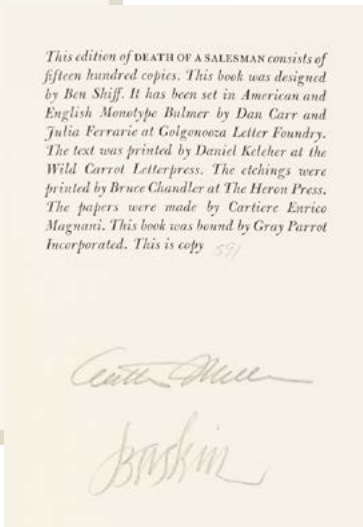 This edition of DEATH OF A SALESMAN consists of
fifteen hundred copies. This book was designed
by Ben Shiff. It has been set in American and
English Monotype Bulmer by Dan Carr and
Julia Ferrarie at Golgonooza Letter Foundry.
The text was printed by Daniel Keleher at the
Wild Carrot Letterpress. The etchings were
printed by Bruce Chandler at The Heron Press.
The papers were made by Cartiere Enrico
Magnani. This book was bound by Gray Parrot
Incorporated. This is copy 591
Arthur Miller
Baskin